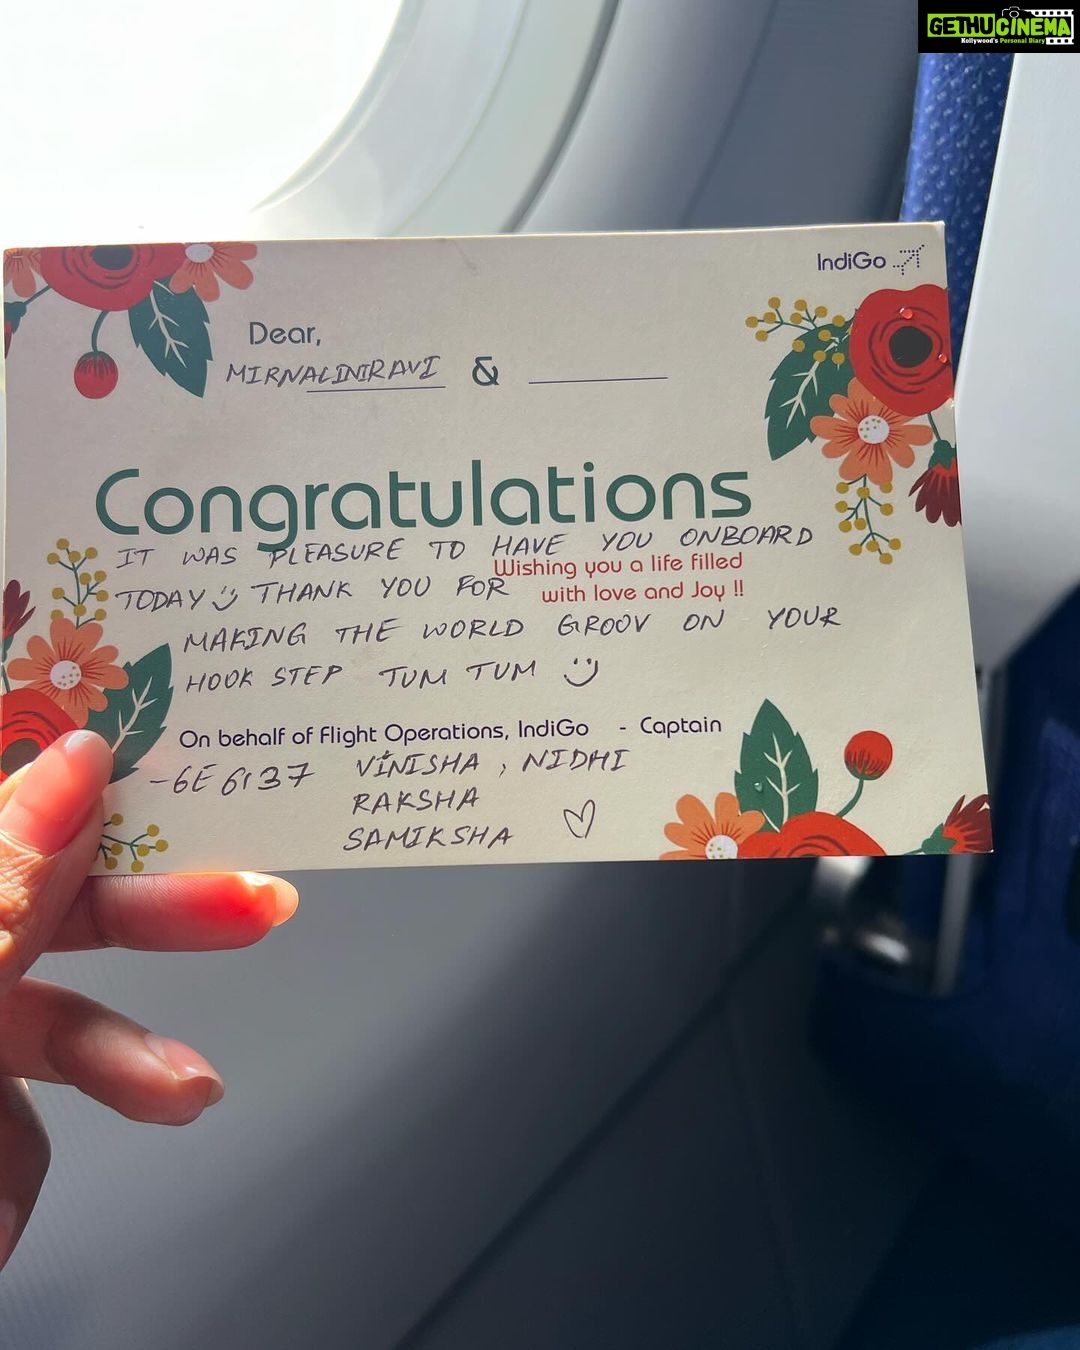 GETHUCINEMA
Kollywood's Personal Diary
IndiGo
Dear,
MIRNALINIRAVI &
Congratulations
IT WAS PLEASURE TO HAVE YOU ONBOARD
Wishing you a life filled
TODAY THANK YOU FOR
with love and Joy !!
MAKING THE WORLD GROOV ON YOUR
HOOK STEP TUM TUM
On behalf of Flight Operations, IndiGo - Captain
-6E 6137 VINISHA, NIDHI
RAKSHA
SAMIKSHA